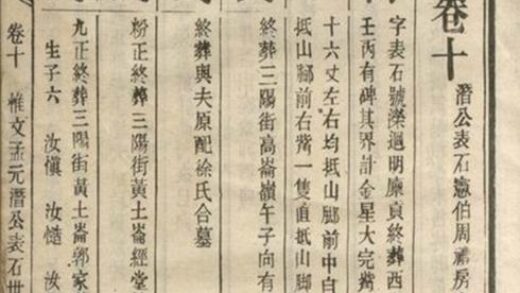 卷十 潛公表石憲伯周房
字表石號濼明廉貢終葬西
壬丙有碑其界計金星大完觜
十六丈左右均抵山腳前中自
抵山腳前右觜一隻直抵山腳
終葬三陽街高崙嶺午子向有
終葬與夫原配徐氏合墓
粉正終葬三陽街黃土崙經堂
九正終葬三陽街黃土崙郭家
生子六 汝慎 汝慥 汝
卷十 惟文孟元潛公表石世